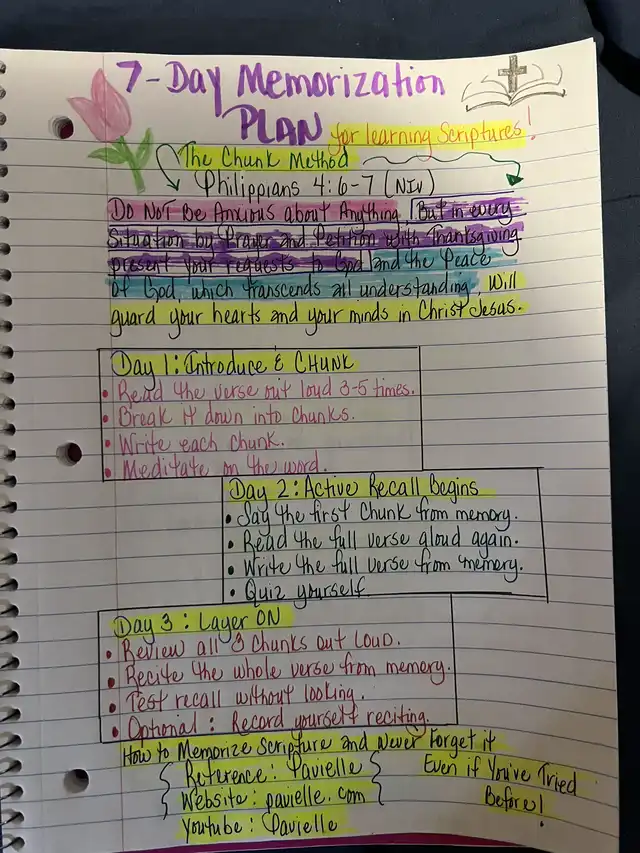 7-Day Memorization
PLAN for learning Scriptures!
The Chunk Method
Philippians 4:6-7 (NIV)
Do Not Be Anxious about Anything, But in every
Situation by Prayer and Petition with Thanksgiving
present your requests to God and the Peace
of God, which transcends all understanding, Will
guard your hearts and your minds in Christ Jesus.
Day 1: Introduce & CHUNK
• Read the verse out loud 3-5 times.
• Break it down into chunks.
• Write each chunk.
• Meditate on the word.
Day 2: Active Recall Begins
• Say the first Chunk from memory.
• Read the full verse aloud again.
• Write the full verse from memory.
• Quiz yourself
Day 3: Layer ON
• Review all 3 chunks out loud.
• Recite the whole verse from memory.
• Test recall without looking.
• Optional: Record yourself reciting.
How to Memorize Scripture and Never Forget it
Even if You've Tried
Before!
Reference: Pavielle
Website: pavielle.com
Youtube: Pavielle